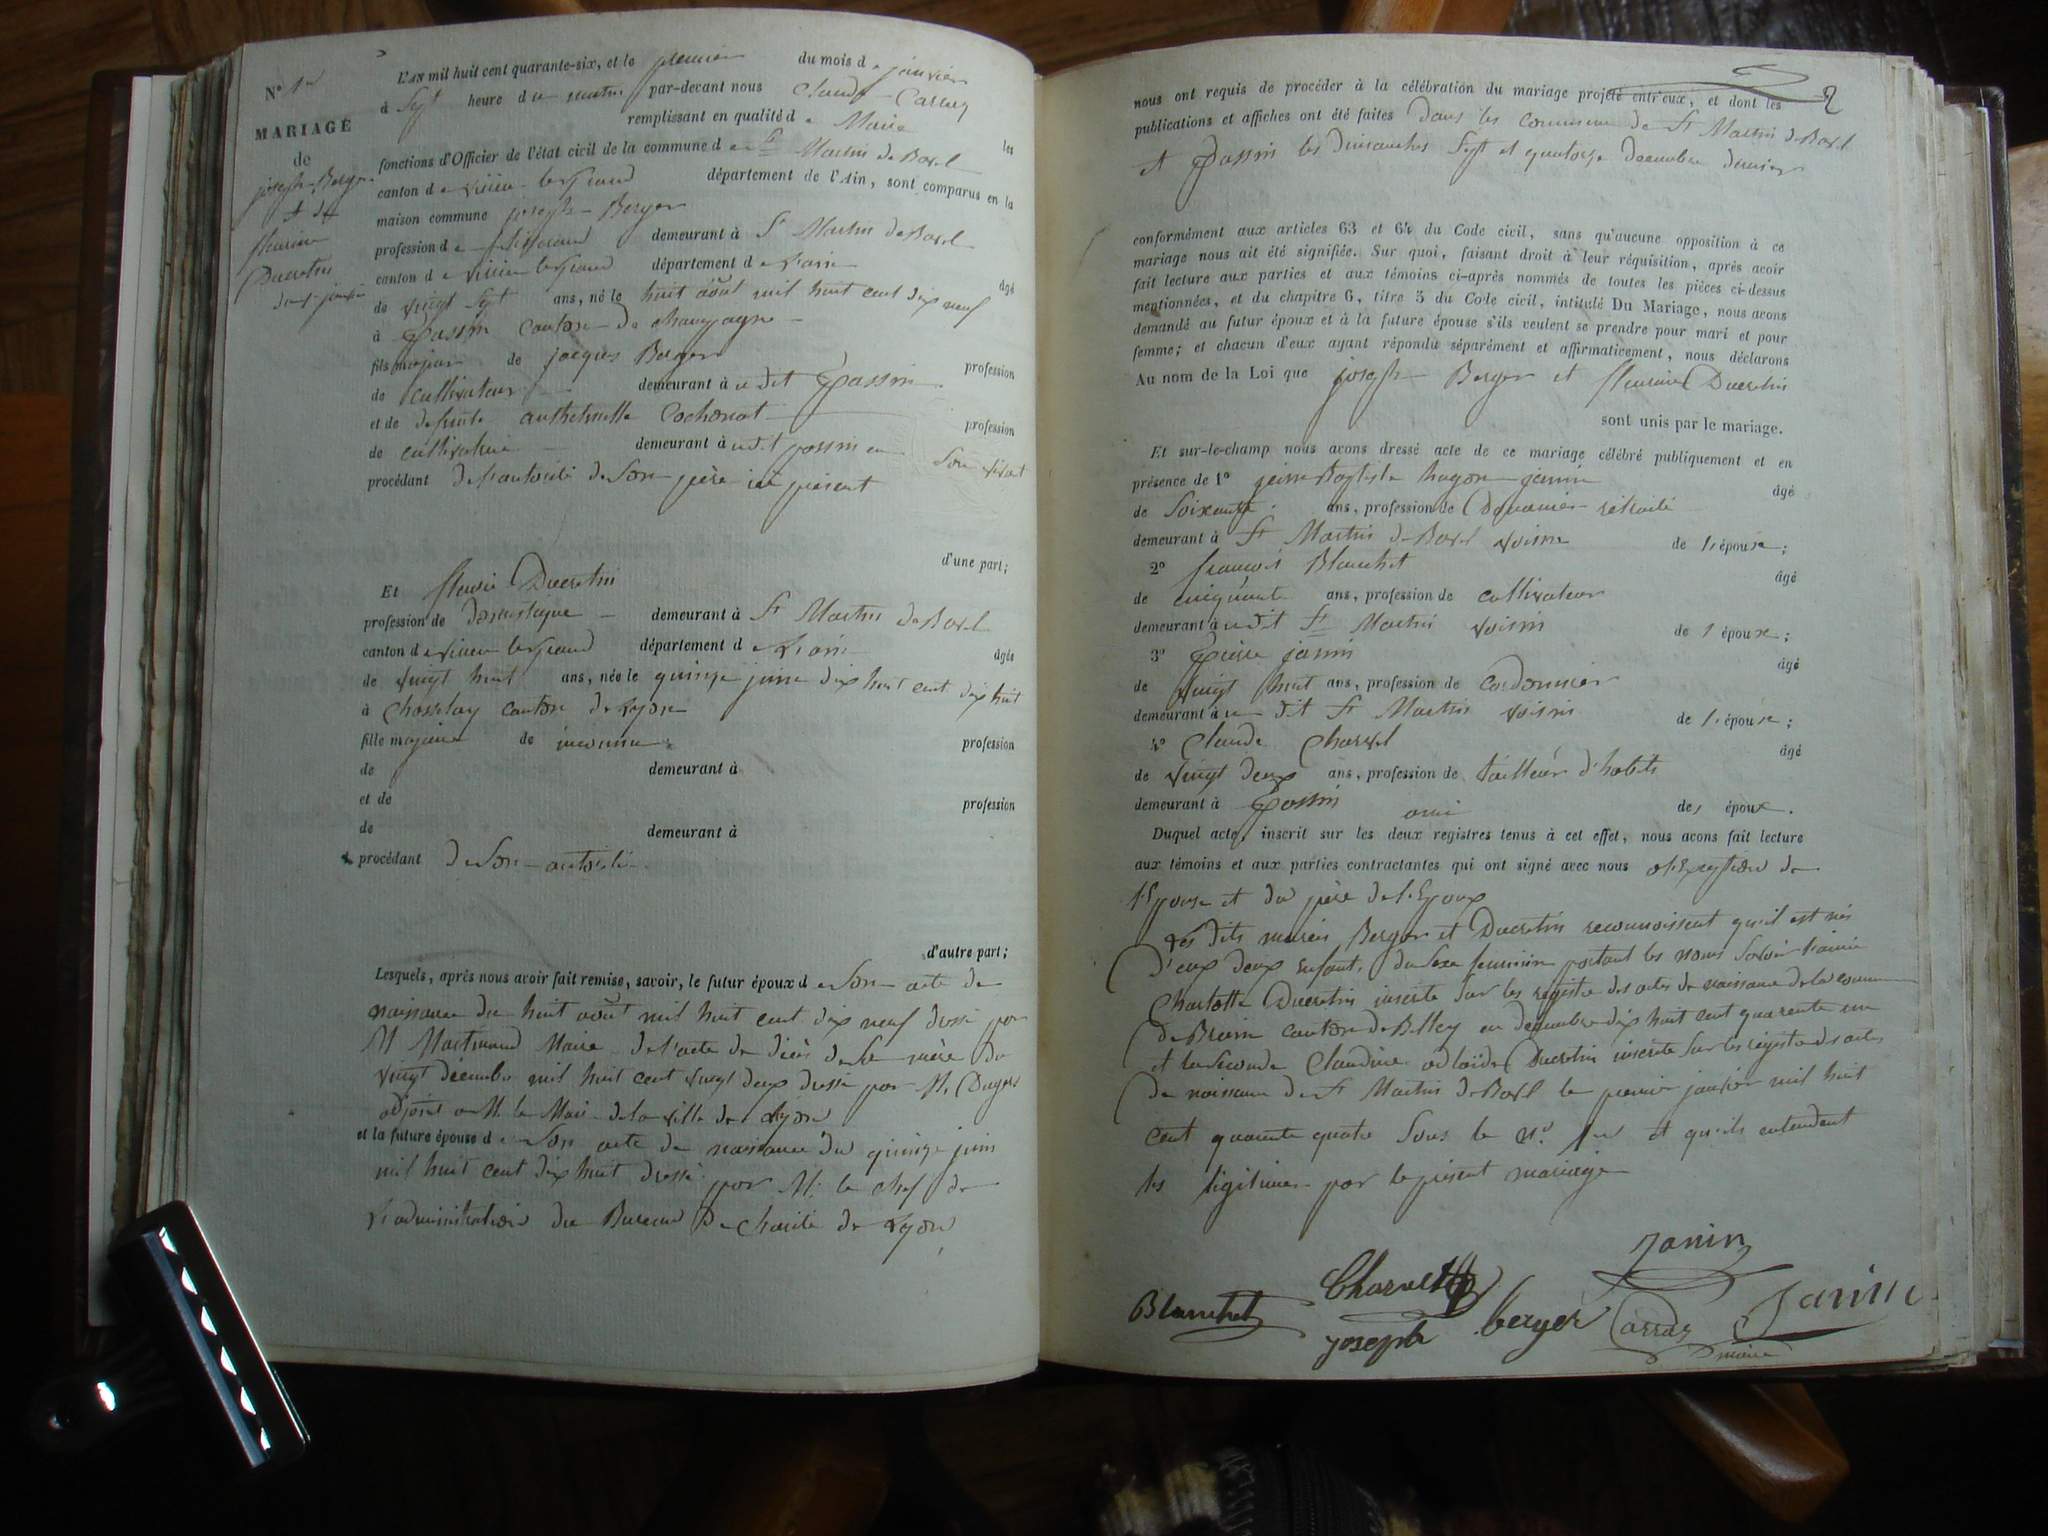 N° 1er
MARIAGE
de
joseph Berger
et de
fleurine
Ducretin
L'AN mil huit cent quarante-six, et le premier du mois de janvier
à Sept heure du matin par-devant nous Claude Carraz
remplissant en qualité de Maire les
fonctions d'Officier de l'état civil de la commune de St Martin de Bavel
canton de virieu le grand département de l'Ain, sont comparus en la
maison commune joseph Berger
profession de demeurant à St Martin de Bavel
canton de virieu le grand département de l'ain âgé
de vingt Sept ans, né le huit août mil huit cent dix neuf
à passin canton de champagne
fils majeur de jacques Berger profession
de cultivateur demeurant à udit passin
et de defunte anthelmette Cochonat profession
de cultivatrice demeurant à udit passin en Son vivant
procédant de l'autorité de Son père ici présent
d'une part;
Et fleurie Ducretin
profession de domestique demeurant à St Martin de Bavel
canton de virieu le grand département de l'ain âgée
de vingt huit ans, née le quinze juin dix huit cent dix huit
à Chasselay canton de Lyon
fille majeure de inconnu profession
de demeurant à
et de profession
de demeurant à
procédant de Son autorité
d'autre part;
Lesquels, après nous avoir fait remise, savoir, le futur époux de Son acte de
naissance du huit août mil huit cent dix neuf dressé par
M Martinand Maire de l'acte de décès de Sa mère du
vingt décembre mil huit cent vingt deux dressé par M.
adjoint à M. le Maire de la ville de Lyon
et la future épouse de Son acte de naissance du quinze juin
mil huit cent dix huit dressé par M. le chef de
l'administration du Bureau de charité de Lyon
2
nous ont requis de procéder à la célébration du mariage projeté entr'eux, et dont les
publications et affiches ont été faites dans les commune de St Martin de Bavel
et passin les dimanches Sept et quatorze decembre dernier
conformément aux articles 63 et 64 du Code civil, sans qu'aucune opposition à ce
mariage nous ait été signifiée. Sur quoi, faisant droit à leur réquisition, après avoir
fait lecture aux parties et aux témoins ci-après nommés de toutes les pièces ci-dessus
mentionnées, et du chapitre 6, titre 5 du Code civil, intitulé Du Mariage, nous avons
demandé au futur époux et à la future épouse s'ils veulent se prendre pour mari et pour
femme; et chacun d'eux ayant répondu séparément et affirmativement, nous déclarons
Au nom de la Loi que joseph Berger et fleurine Ducretin
sont unis par le mariage.
Et sur-le-champ nous avons dressé acte de ce mariage célébré publiquement et en
présence de 1° jean Baptiste hugon janin âgé
de Soixante ans, profession de Douanier retraité
demeurant à St Martin de Bavel voisin de l'épouse;
2° francois Blanchet âgé
de cinquante ans, profession de cultivateur
demeurant à udit St Martin voisin de l'épouse;
3° pierre janin âgé
de vingt huit ans, profession de cordonnier
demeurant à u dit St Martin voisin de l'épouse;
4° Claude Charvet âgé
de vingt deux ans, profession de tailleur d'habits
demeurant à passin ami des époux.
Duquel acte, inscrit sur les deux registres tenus à cet effet, nous avons fait lecture
aux témoins et aux parties contractantes qui ont signé avec nous à l'Exception de
l'Epouse et du père de l'Epoux
les dits mariés Berger et Ducretin reconnoissent qu'il est nés
d'eux deux Enfants du Sexe feminin portant les noms Savoir l'ainée
Charlotte Ducretin inscrite Sur les registre des actes de naissance de la commune
de canton de Belley en decembre dix huit cent quarente un
et la Seconde Claudine adelaïde Ducretin inscrite Sur les registre des actes
de naissance de St Martin de Bavel le premier janvier mil huit
cent quarente quatre Sous le n° 1er et qu'ils entendent
les legitimer par le présent mariage
Janin
Blanchet Charvet
joseph berger Carraz Janin
maire